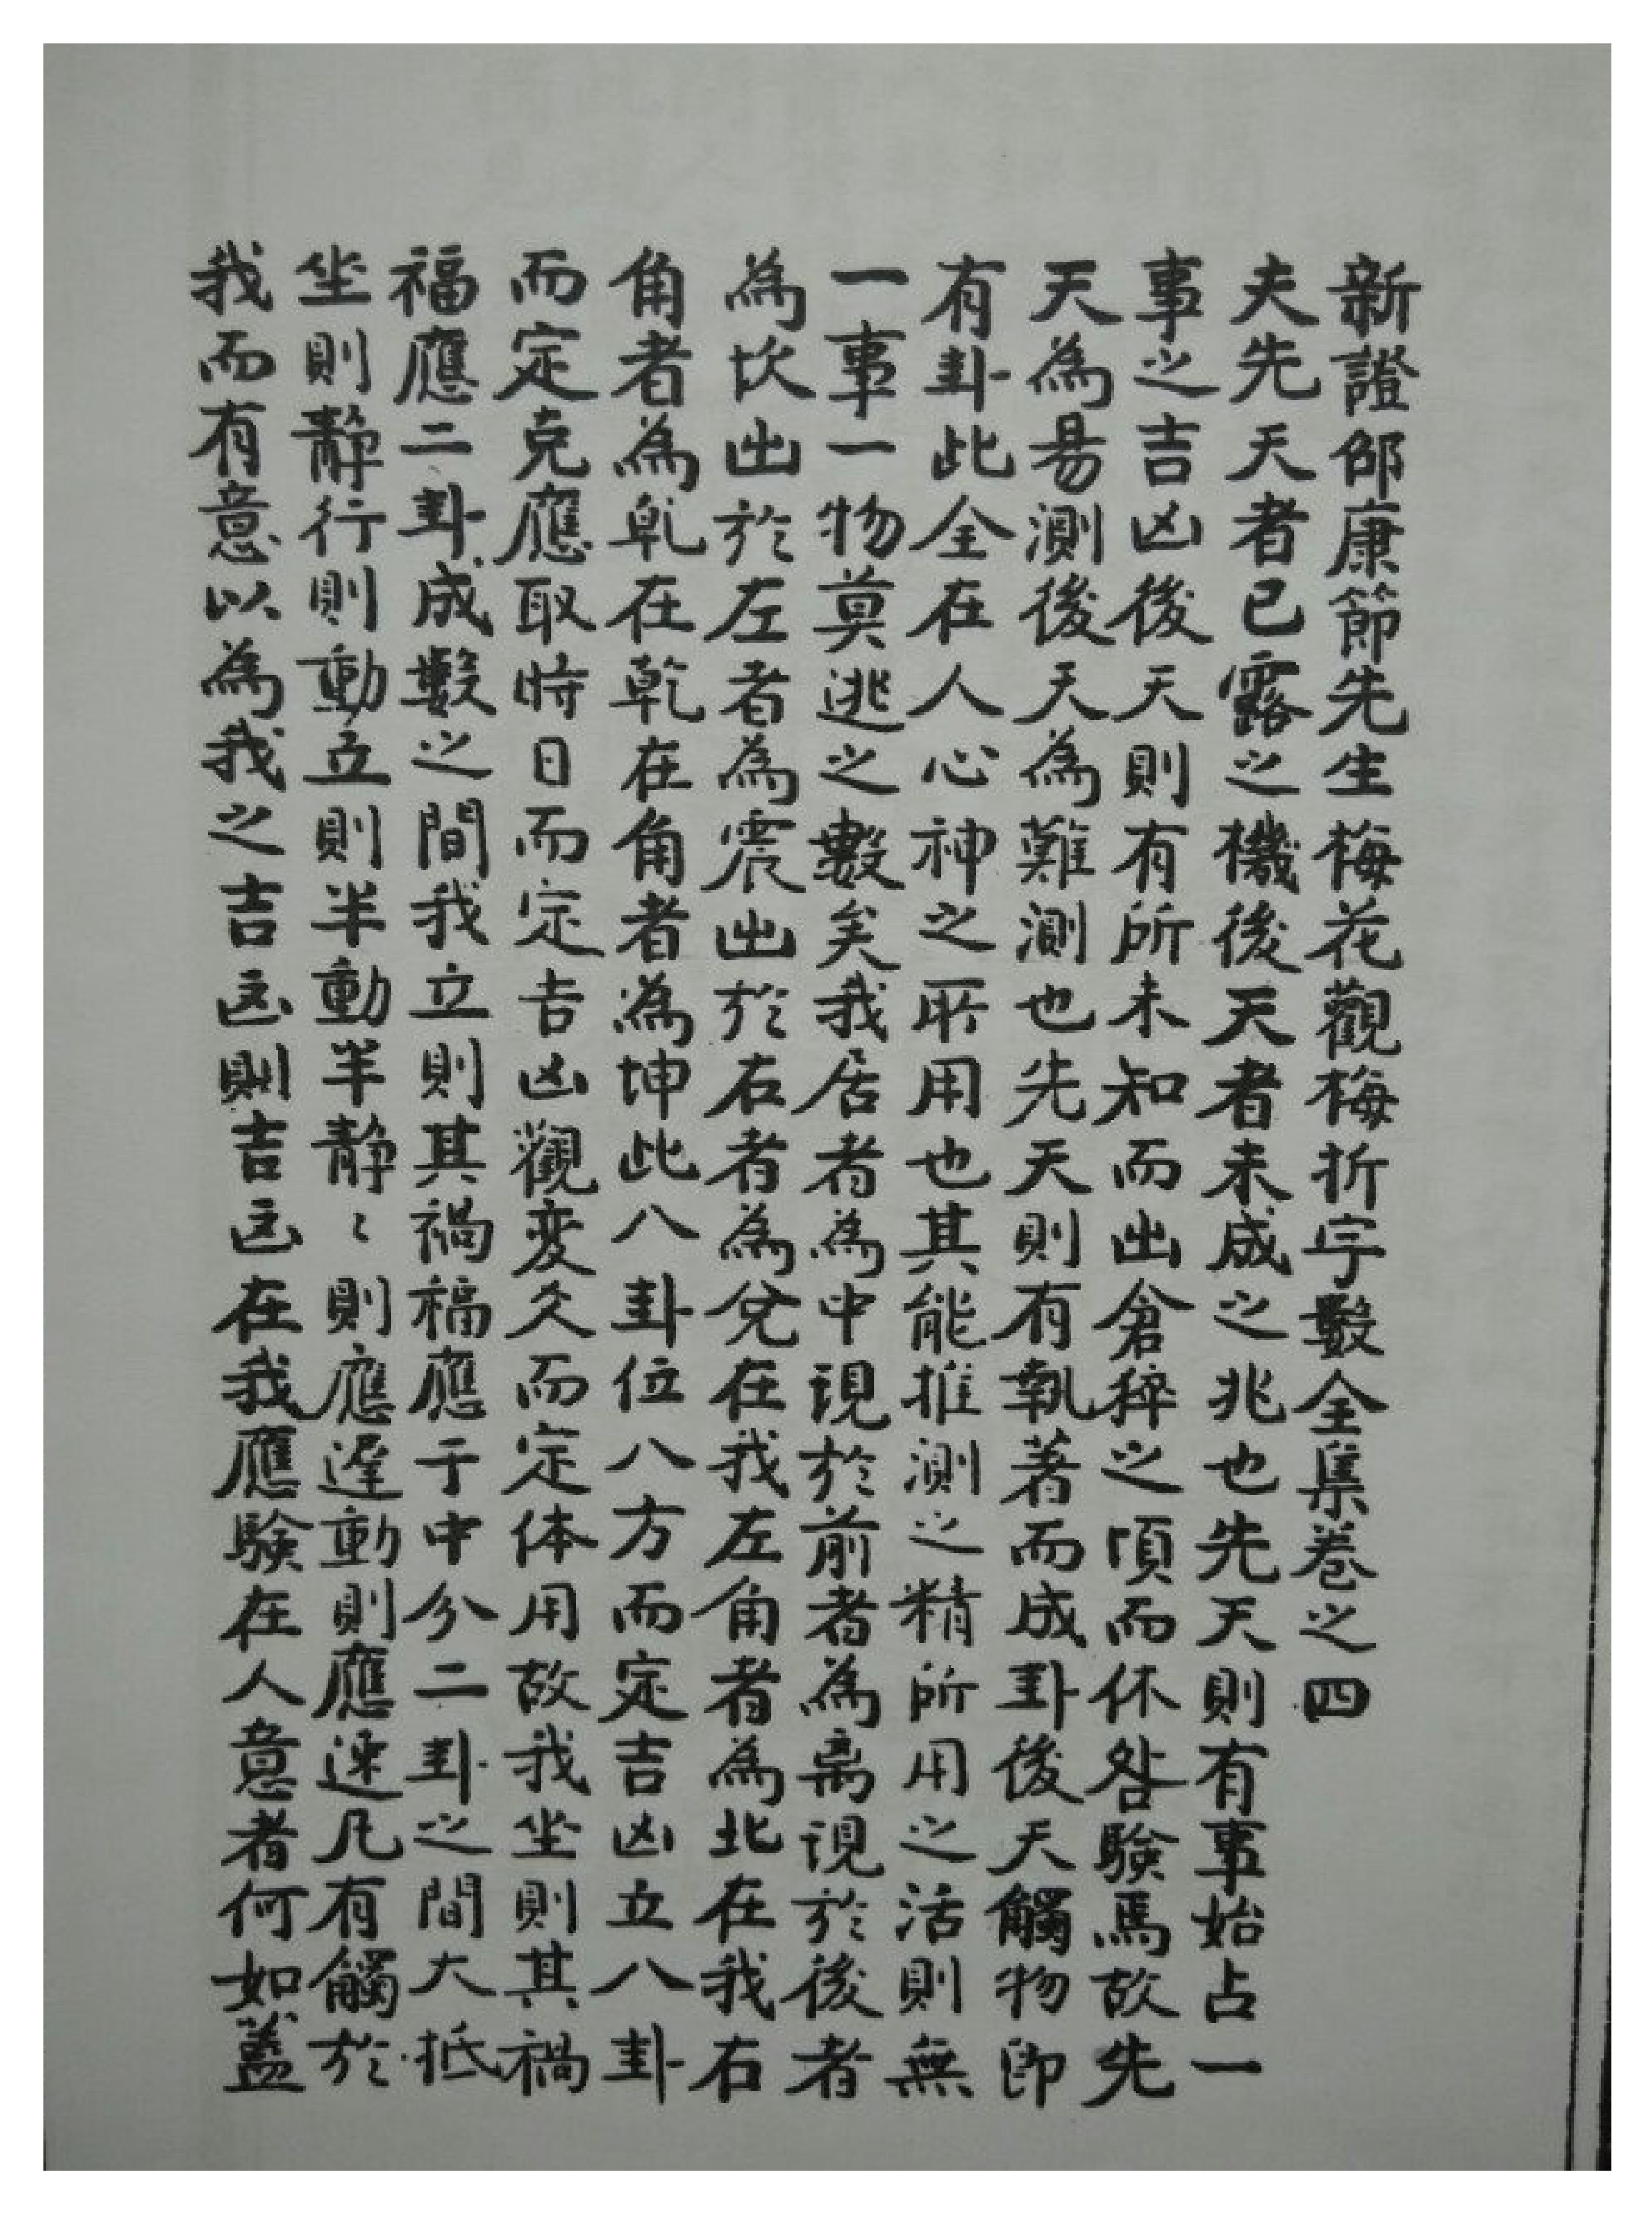 新證邵康節先生梅花觀梅折字數全集卷之四
夫先天者已露之機後天者未成之兆也先天則有事始占一
事之吉凶後天則有所未知而出倉稡之頃而休咎驗焉故先
天為易測後天為難測也先天則有執著而成卦後天觸物即
有卦此全在人心神之所用也其能推測之精所用之活則無
一事一物莫逃之數矣我居者為中現於前者為离現於後者
為坎出於左者為震出於右者為兌在我左角者為北在我右
角者為乹在乾在角者為坤此八卦位八方而定吉凶立八卦
而定克應取時日而定吉凶觀変爻而定体用故我坐則其禍
福應二卦成數之間我立則其禍福應于中分二卦之間大抵
坐則靜行則動立則半動半静〻則應遲動則應速凡有觸於
我而有意以為我之吉凶則吉凶在我應験在人意者何如蓋